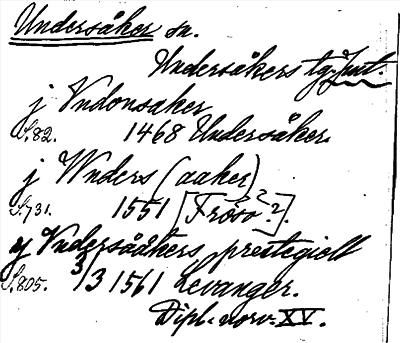 Undersåker sn.
Undersåkers tg. Jmt.
j Vndonsaker
S.82. 1468 Undersåker.
j Wnders (aaker)
S.731. 1551 [Frösö??].
y Vndersååkers prestegield
S.805. 3/3 1561 Levanger.
Dipl. norv. XV.